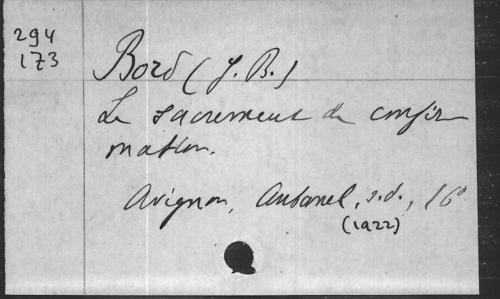 294
173
Bord (J. B.)
Le sacrement de confir
mation.
Avignon, Aubanel, s.d., 16°
(1922)